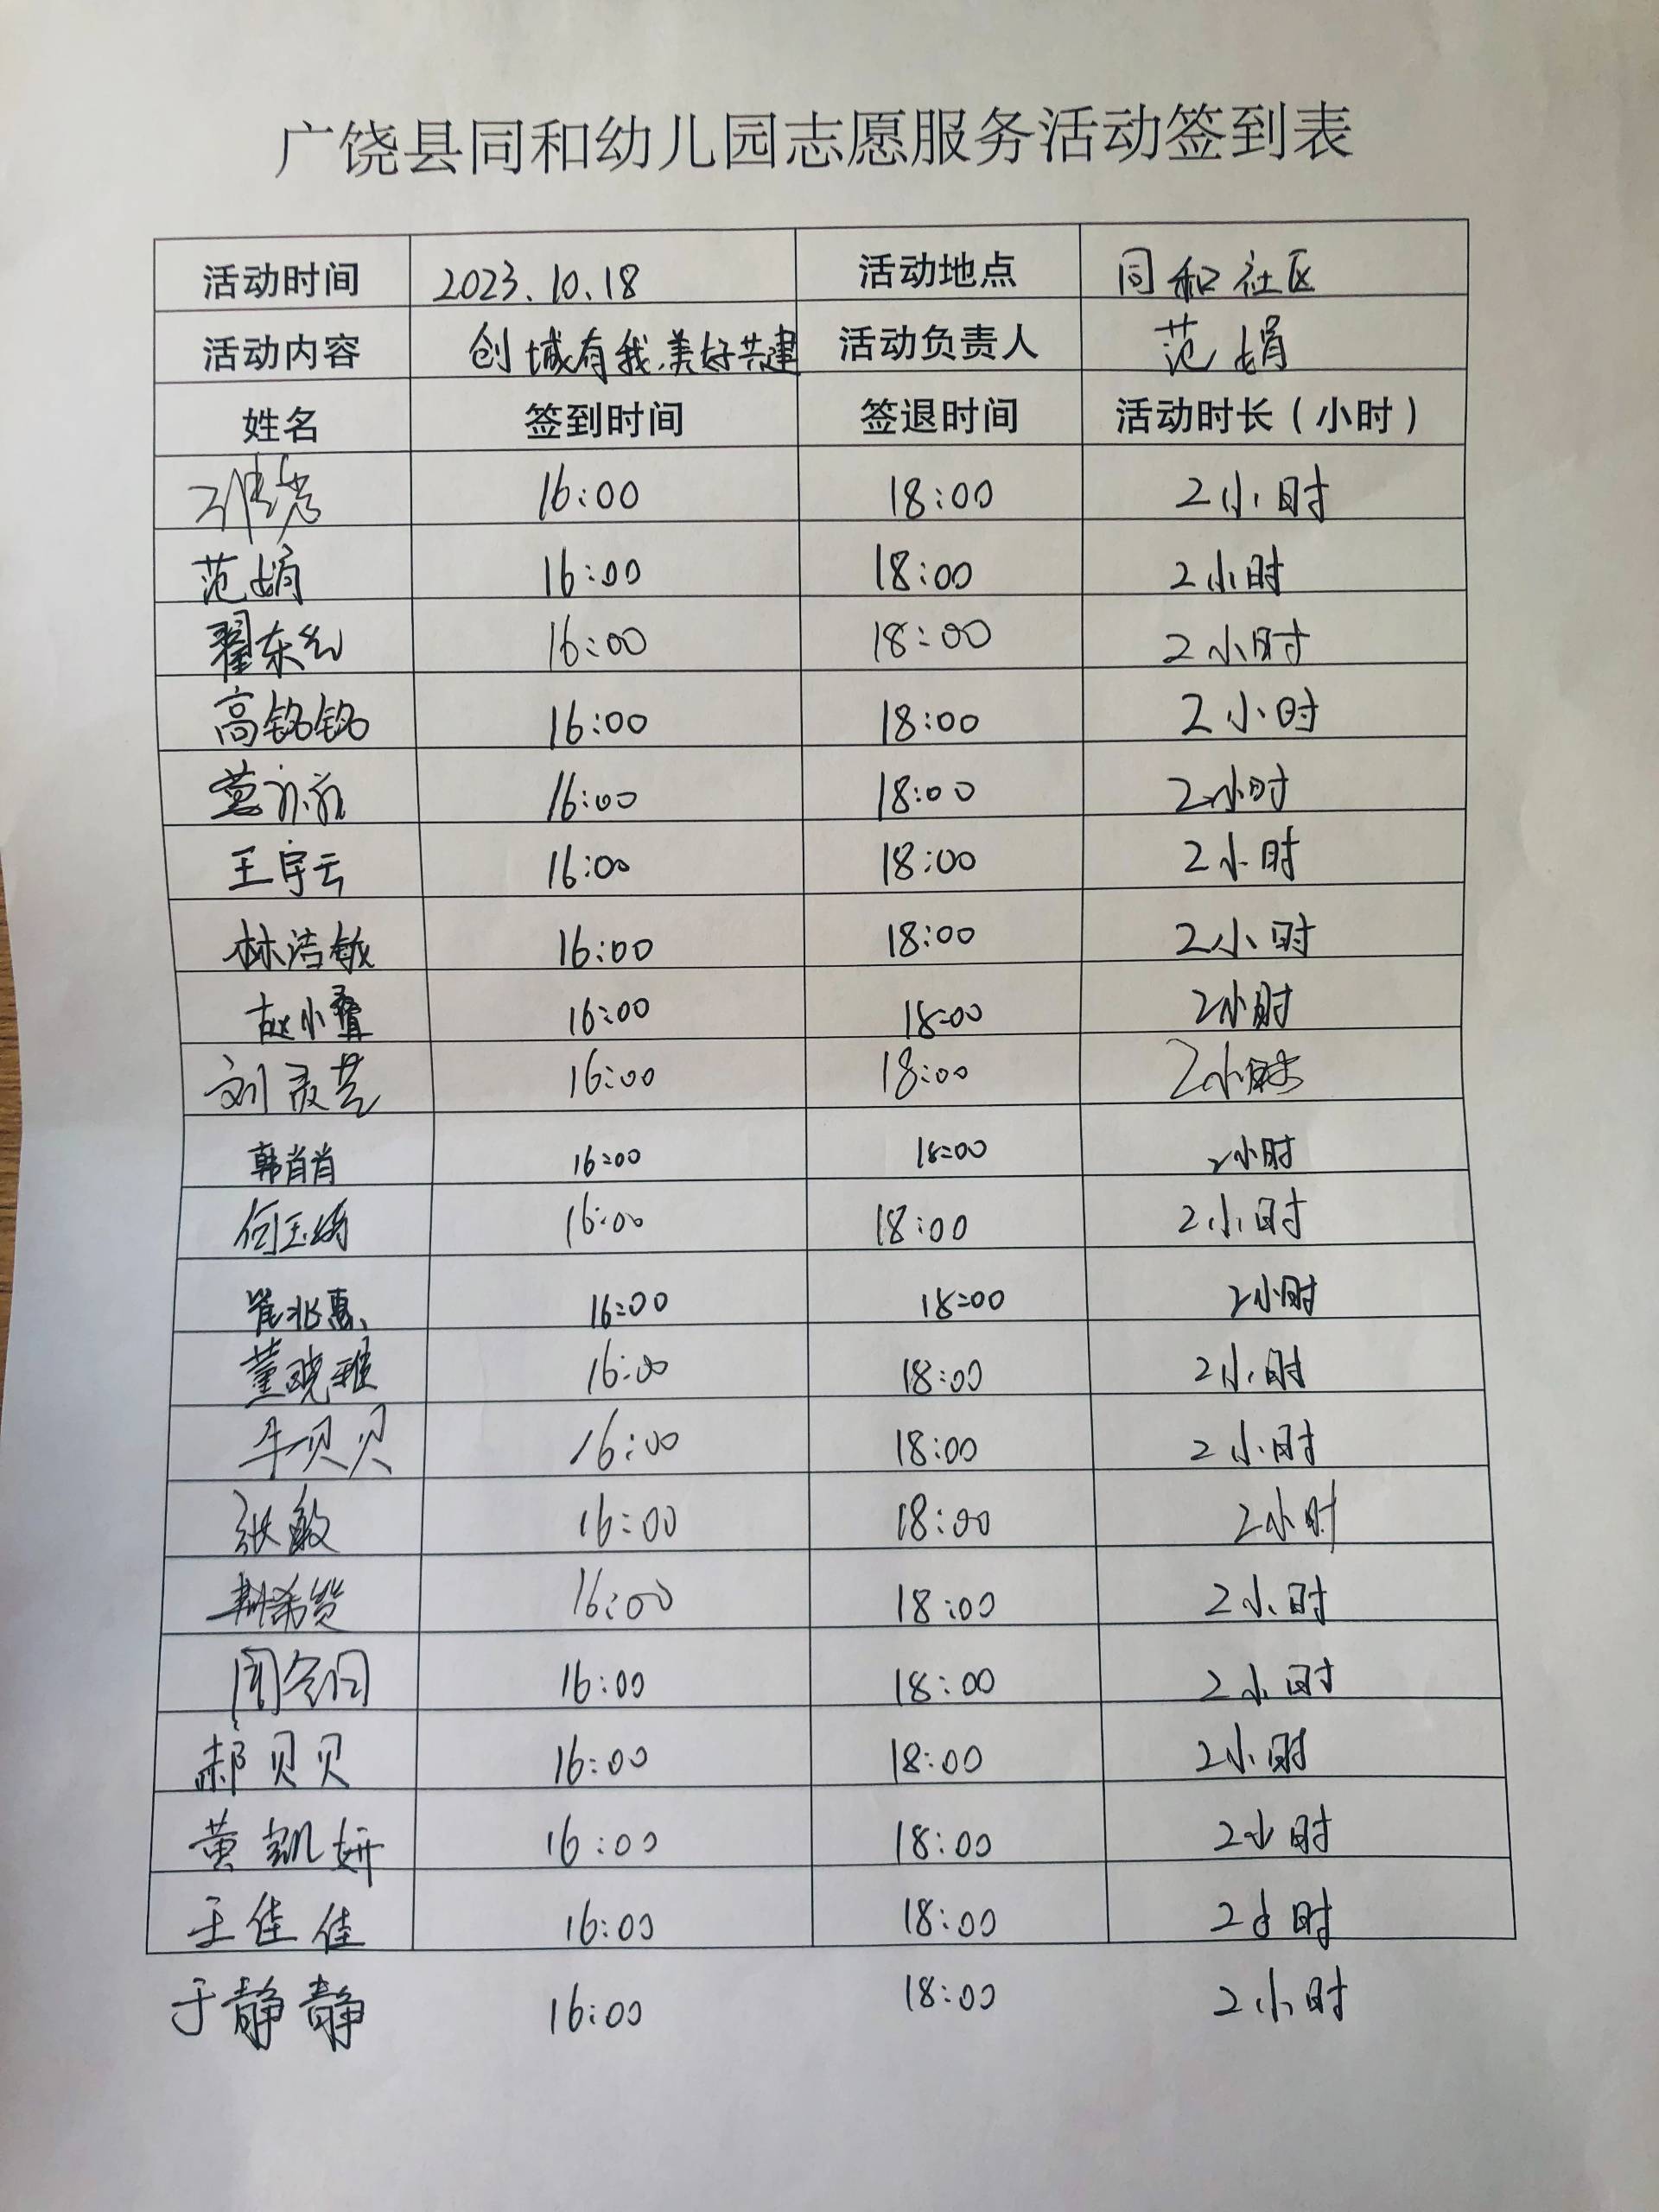 广饶县同和幼儿园志愿服务活动签到表
活动时间 2023.10.18 活动地点 同和社区
活动内容 创城有我,美好共建 活动负责人 范娟
姓名 签到时间 签退时间 活动时长(小时)
16:00 18:00 2小时
范娟 16:00 18:00 2小时
翟东 16:00 18:00 2小时
高铭铭 16:00 18:00 2小时
16:00 18:00 2小时
王宇云 16:00 18:00 2小时
林洁敏 16:00 18:00 2小时
赵小叠 16:00 18:00 2小时
刘 16:00 18:00 2小时
韩肖肖 16:00 18:00 2小时
何玉 16:00 18:00 2小时
崔兆惠 16:00 18:00 2小时
董晓雅 16:00 18:00 2小时
牛贝贝 16:00 18:00 2小时
张敏 16:00 18:00 2小时
16:00 18:00 2小时
16:00 18:00 2小时
郝贝贝 16:00 18:00 2小时
黄凯妍 16:00 18:00 2小时
王佳佳 16:00 18:00 2小时
于静静 16:00 18:00 2小时